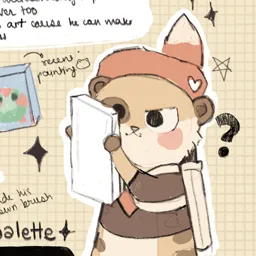 ver too
art cause he can make
recent
painting
?
de his
own brush
palette